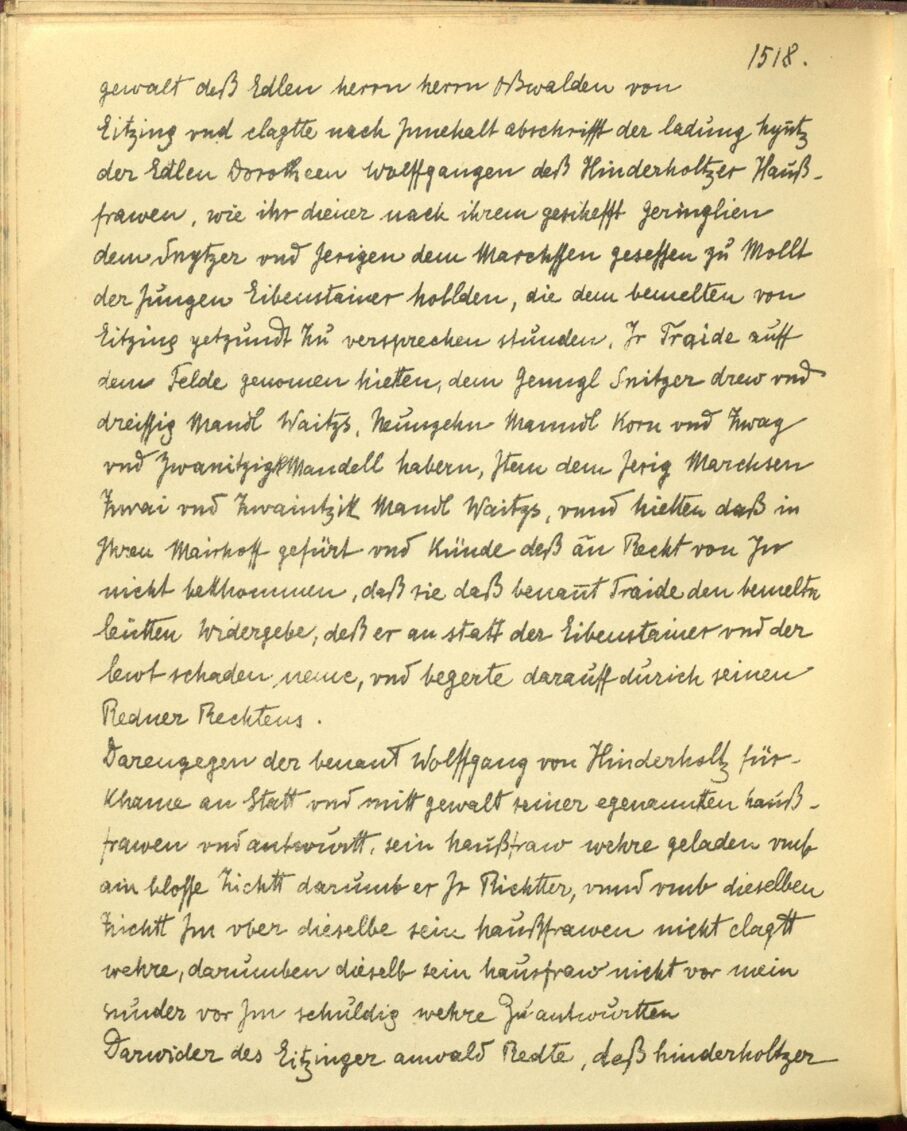 1518.
gewalt deß Edlen herrn herrn Oßwalden von
Eitzing vnd clagtte nach Innehalt abschrifft der ladung hyntz
der Edlen Dorotheen Wolffgangen deß Hinderholtzer Hauß-
frawen, wie ihr diener nach ihrem geschefft Geringlien
dem Snytzer vnd Jerigen dem Marchssen gesessen zu Mollt
der Jungen Eibenstainer hollden, die dem bemelten von
Eitzing yetzundt zu versprechen stunden, Ir Traide auff
dem Felde genomen hietten, dem Genngl Snitzer drew vnd
dreissig Mandl Waitzs, Neunzehn Manndl Korn vnd Zway
vnd Zwanitzigk Mandell habern, Item dem Jerig Marchsen
Zwai vnd Zwaintzik Mandl Waitzs, vnnd hietten daß in
Ihren Mairhoff gefürt vnd Künde deß än Recht von Ir
nicht bekhommen, daß sie daß benannt Traide den bemeltn
leutten Widergebe, deß er an statt der Eibenstainer vnd der
lewt schaden neme, vnd begerte darauff durich seinen
Redner Rechtens.
Darengegen der benant Wolffgang von Hinderholtz für-
Khame an Statt vnd mitt gewalt seiner egenannten hauß-
frawen vnd antwurtt, sein haußfraw wehre geladen vmb
ain blosse Zichtt darumb er Ir Richtter, vnnd vmb dieselben
Zichtt Im vber dieselbe sein haußfrawen nicht clagtt
wehre, darumben dieselb sein hausfraw nicht vor mein
sunder vor Im schuldig wehre Zu antwurtten
Darwider des Eitzinger anwald Redte, deß hinderholtzer